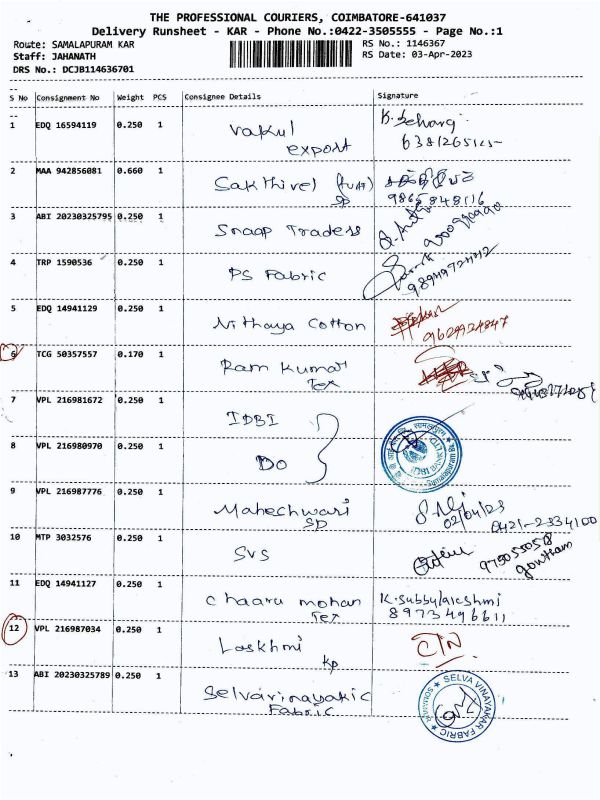 THE PROFESSIONAL COURIERS, COIMBATORE-641037
Delivery Runsheet - KAR - Phone No.:0422-3505555 - Page No.:1
Route: SAMALAPURAM KAR
RS No.: 1146367
Staff: JAHANATH
RS Date: 03-Apr-2023
DRS No.: DCJB114636701
S No Consignment No Weight PCS Consignee Details Signature
1 EDQ 16594119 0.250 1 Vakul export
6381265125
2 MAA 942856081 0.660 1 Sakthivel SP
9865848116
3 ABI 20230325795 0.250 1 Snaap Traders
4 TRP 1590536 0.250 1 PS Fabric
5 EDQ 14941129 0.250 1 Nithaya Cotton
9629924847
6 TCG 50357557 0.170 1 Ram Kumar Tex
7 VPL 216981672 0.250 1 IDBI
8 VPL 216980970 0.250 1 Do
Samalapuram
9 VPL 216987776 0.250 1 Maheshwari SP
02/04/23
0421-2334100
10 MTP 3032576 0.250 1 SVS
9750555058
gowtham
11 EDQ 14941127 0.250 1 Chaaru mohan Tex
K. Subbulakshmi
8973496611
12 VPL 216987034 0.250 1 Laskhmi KP
C/N
13 ABI 20230325789 0.250 1 Selvavinayakic Fabric
SELVA VINAYAKAR FABRIC